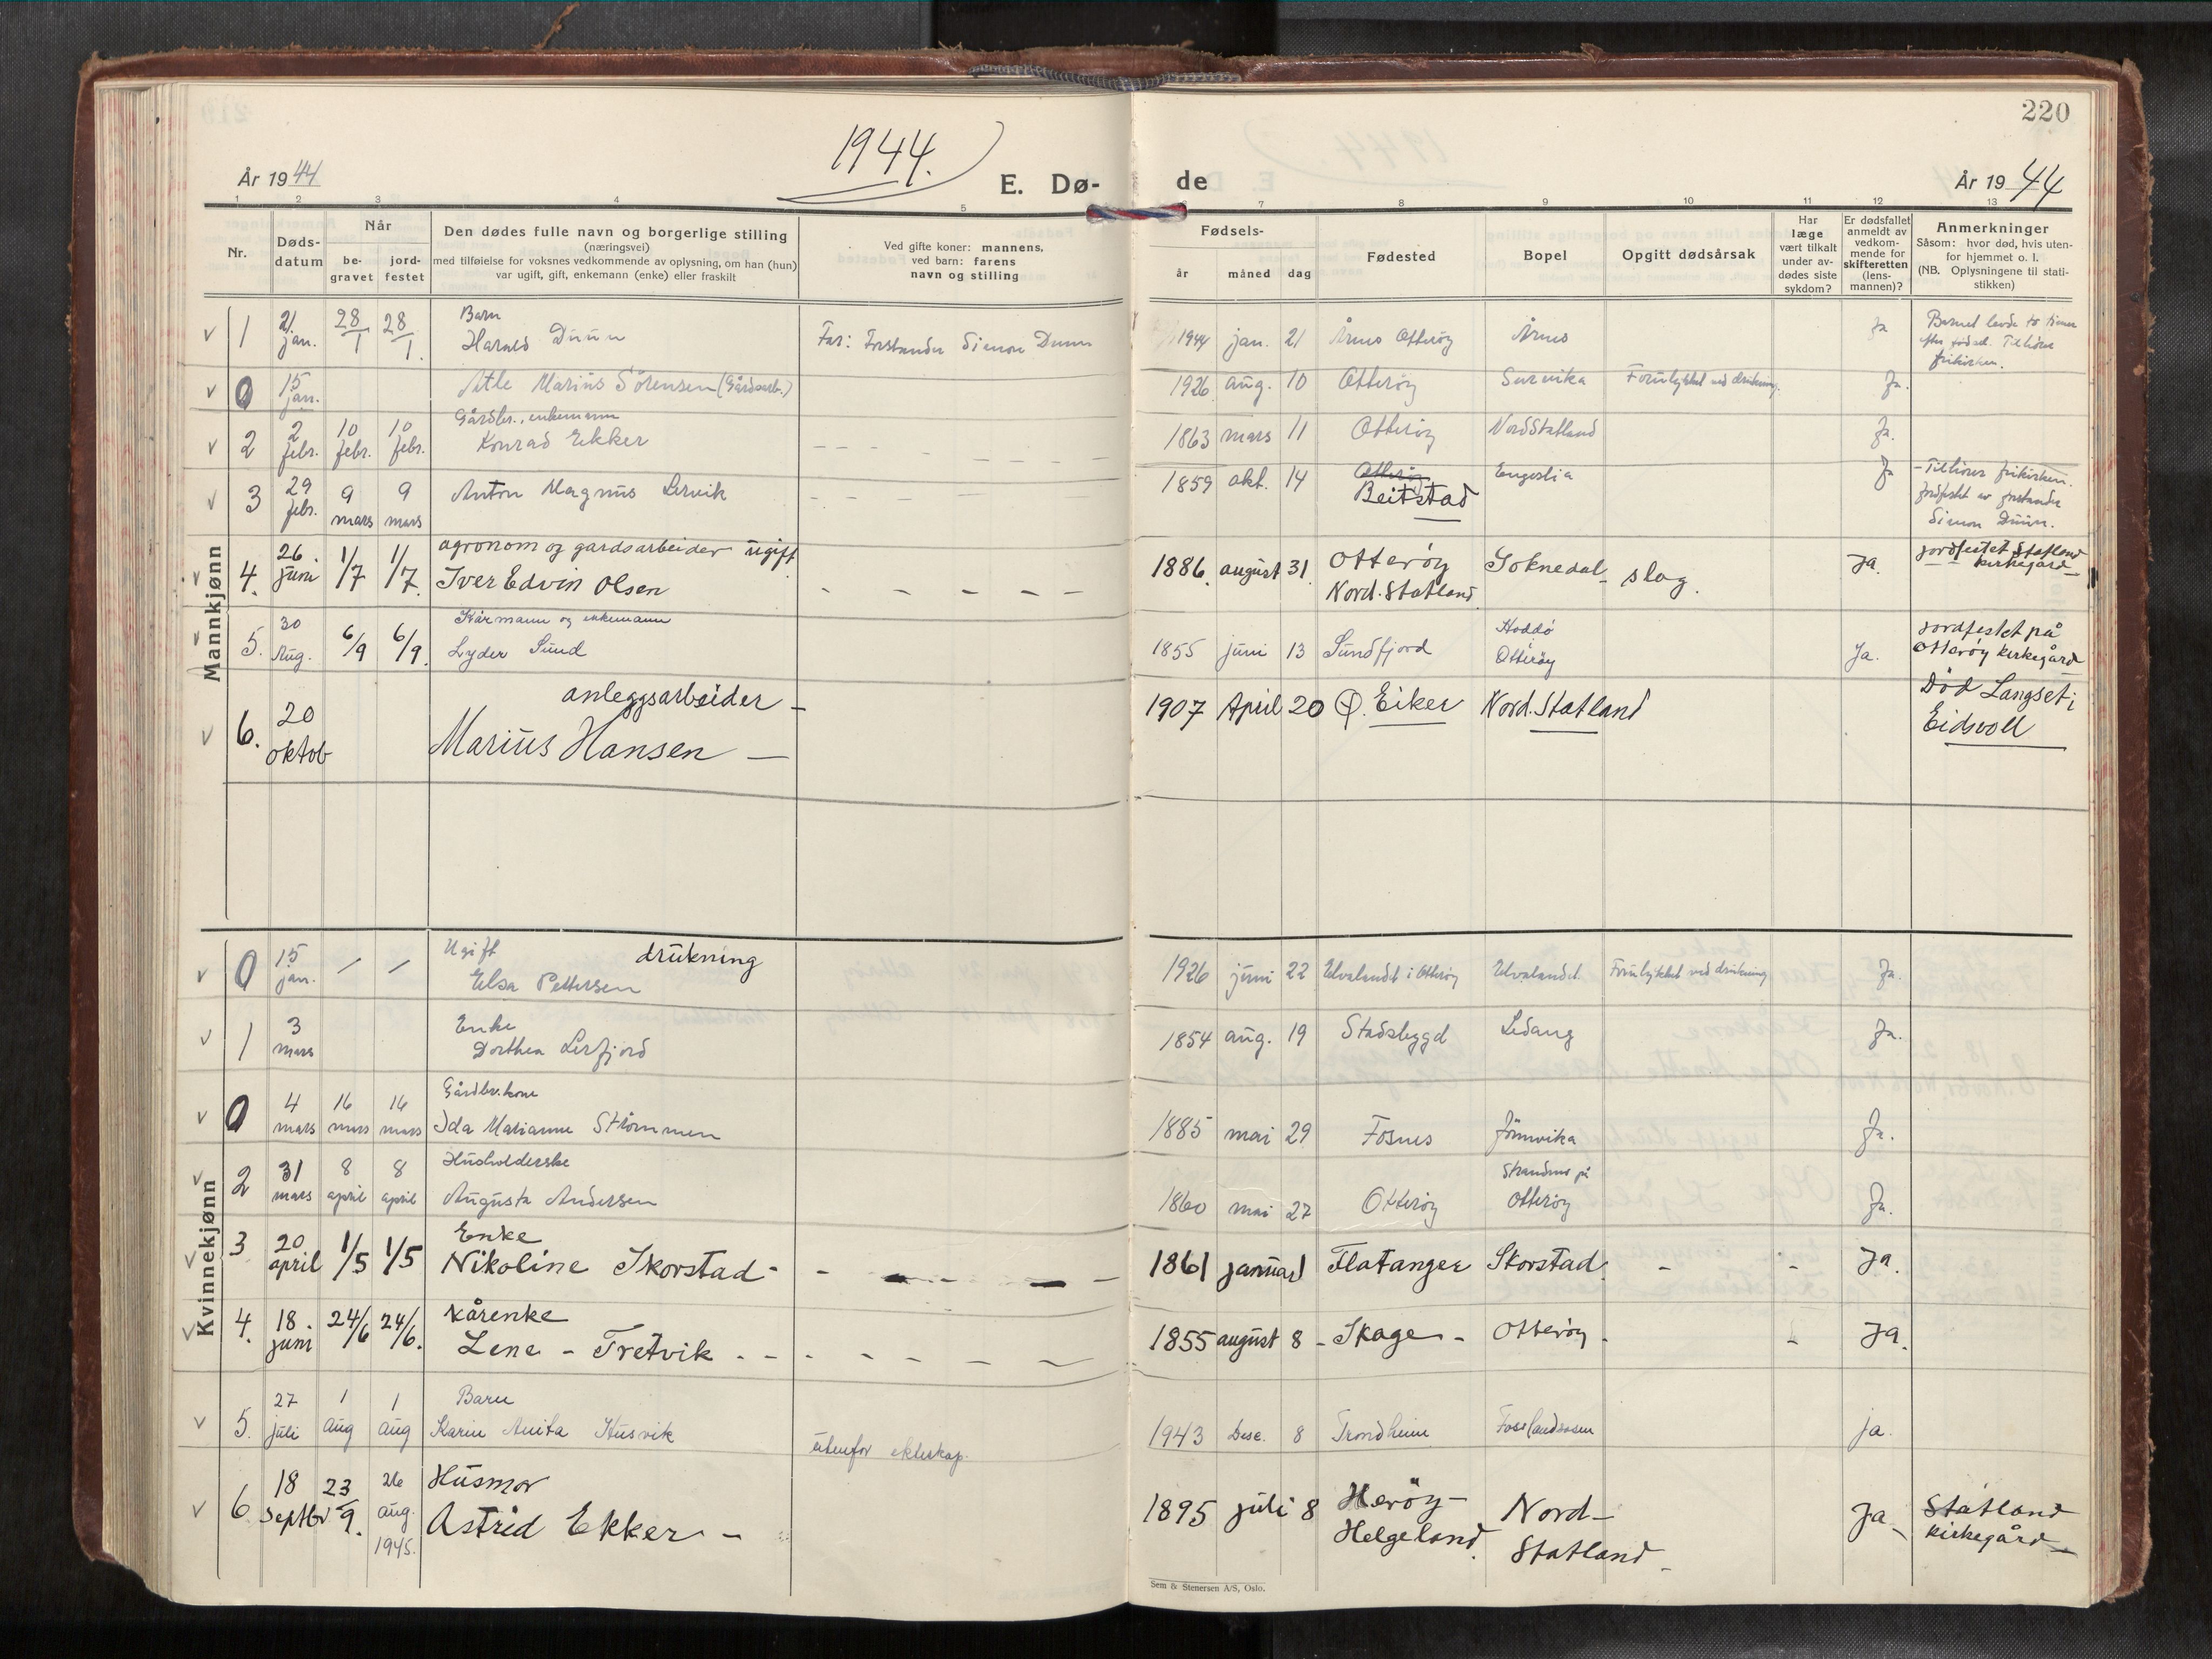 220
1944.
År 1944
E. Dø-
de
År 1944
1 2 3 4 5 6 7 8 9 10 11 12 13
Nr.
Døds-
datum
Når
be-
gravet
jord-
festet
Den dødes fulle navn og borgerlige stilling
(næringsvei)
med tilføielse for voksnes vedkommende av oplysning, om han (hun)
var ugift, gift, enkemann (enke) eller fraskilt
Ved gifte koner: mannens,
ved barn: farens
navn og stilling
Fødsels-
år måned dag
Fødested
Bopel
Opgitt dødsårsak
Har
læge
vært tilkalt
under av-
dødes siste
sykdom?
Er dødsfallet
anmeldt av
vedkom-
mende for
skifteretten
(lens-
mannen)?
Anmerkninger
Såsom: hvor død, hvis uten-
for hjemmet o. l.
(NB. Oplysningene til stati-
stikken)
Mannkjønn
v 1 21 jan. 28/1 28/1. Barn
Harald Duun Far: Forstander Simon Duun 1944 jan. 21 Årnes Otterøy Årnes Ja Barnet levde to timer
efter fødsel. Tilhører
frikirken.
v 0 15 jan. Atle Marius Sørensen (Gårdsarb.) 1926 aug. 10 Otterøy Survika Forulykket ved drukning. Ja.
v 2 2 febr. 10 febr. 10 febr. Gårdbr., enkemann
Konrad Ekker 1863 mars 11 Otterøy Nord Statland Ja.
v 3 29 febr. 9 mars 9 mars Anton Magnus Lervik 1859 okt. 14 Otterøy
Beitstad Engeslia Ja - Tilhører frikirken.
Jordfestet av forstander
Simon Duun.
v 4. 26. juni 1/7 1/7. agronom og gardsarbeider ugift
Iver Edvin Olsen 1886. august 31. Otterøy
Nord. Statland Soknedal - slag. Ja. jordfestet Statland
kirkegård
v 5. 30 Aug. 6/9 6/9. Kårmann og enkemann
Lyder Sund 1855 juni 13 Sundfjord Hoddø
Otterøy Ja. jordfestet på
Otterøy kirkegård
v 6. 20 oktob anleggsarbeider -
Marius Hansen - 1907 April 20 Ø. Eiker Nord. Statland Død Langset i
Eidsvoll
Kvinnekjønn
v 0 15 jan. / / Ugift drukning
Elsa Pettersen 1926 juni 22 Utvalandet i Otterøy Utvalandet Forulykket ved drukning Ja.
v 1 3 mars Enke
Dorthea Lerfjord 1854 aug. 19 Stadsbygd Ledang Ja.
v 0 4 mars 16 mars 16 mars Gårdbr.kone
Ida Marianne Strømmen 1885 mai 29 Fosnes Jönnvika Ja.
v 2 31 mars 8 april 8 april Husholderske
Augusta Andersen 1860 mai 27 Otterøy Strandnes på
Otterøy Ja.
v 3 20 april 1/5 1/5 Enke
Nikoline Skorstad - 1861 januar 1 Flatanger Skorstad. - - Ja.
v 4. 18. juni 24/6 24/6. Kårenke
Lene - Tretvik 1855 august 8 - Skage - Otterøy. - Ja.
v 5. 27 juli 1 aug 1 aug Barn
Karin Anita Husvik utenfor ekteskap. 1943 Des. 8 Trondheim Fosslandsosen ja.
v 6. 18 septbr 23/9. 26 aug. 1945. Husmor
Astrid Ekker - 1895 juli 8 Herøy -
Helgeland. Nord -
Statland - Ja - Statland
kirkegård -
Sem & Stenersen A/S, Oslo.